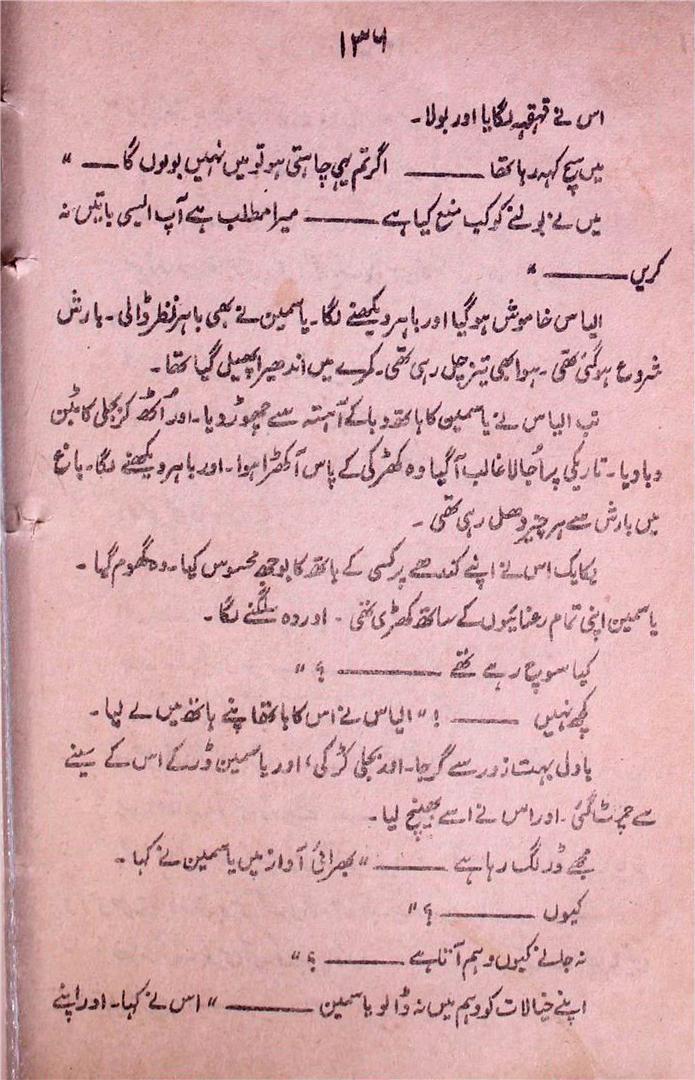 ۱۳۶
اس نے قہقہہ لگایا اور بولا۔
میں سچ کہہ رہا تھا ——— اگر تم یہی چاہتی ہو تو میں نہیں بولوں گا —— "
میں نے بولنے کو کب منع کیا ہے ——— میرا مطلب ہے آپ ایسی باتیں نہ
کریں ——— "
الیاس خاموش ہوگیا اور باہر دیکھنے لگا۔ یاسمین نے بھی باہر نظر ڈالی۔ بارش
شروع ہوگئی تھی۔ ہوا بھی تیز چل رہی تھی۔ کمرے میں اندھیرا پھیلی گیا تھا۔
تب الیاس نے یاسمین کا ہاتھ دبا کے آہستہ سے چھوڑ دیا۔ اور اُٹھ کر بجلی کا بٹن
دبا دیا۔ تاریکی پر اُجالا غالب آگیا وہ کھڑکی کے پاس آکھڑا ہوا۔ اور باہر دیکھنے لگا۔ باغ
میں بارش سے ہر چیز دھل رہی تھی۔
یکایک اس نے اپنے کندھے پر کسی کے ہاتھ کا بوجھ محسوس کیا۔ وہ گھوم گیا۔
یاسمین اپنی تمام رعنائیوں کے ساتھ کھڑی تھی۔ اور وہ سلگنے لگا۔
کیا سوچ رہے تھے ——— ؟ "
کچھ نہیں ——— ! " الیاس نے اس کا ہاتھ اپنے ہاتھ میں لے لیا۔
بادل بہت زور سے گرجا۔ اور بجلی کڑکی، اور یاسمین ڈر کے اس کے سینے
سے چمٹ گئی۔ اور اس نے اسے بھینچ لیا۔
مجھے ڈر لگ رہا ہے ——— " بھرائی آواز میں یاسمین نے کہا۔
کیوں ——— ؟ "
نہ جانے کیوں وہم آتا ہے ——— ؟ "
اپنے خیالات کو وہم میں نہ ڈالو یاسمین ——— " اس نے کہا۔ اور اپنے